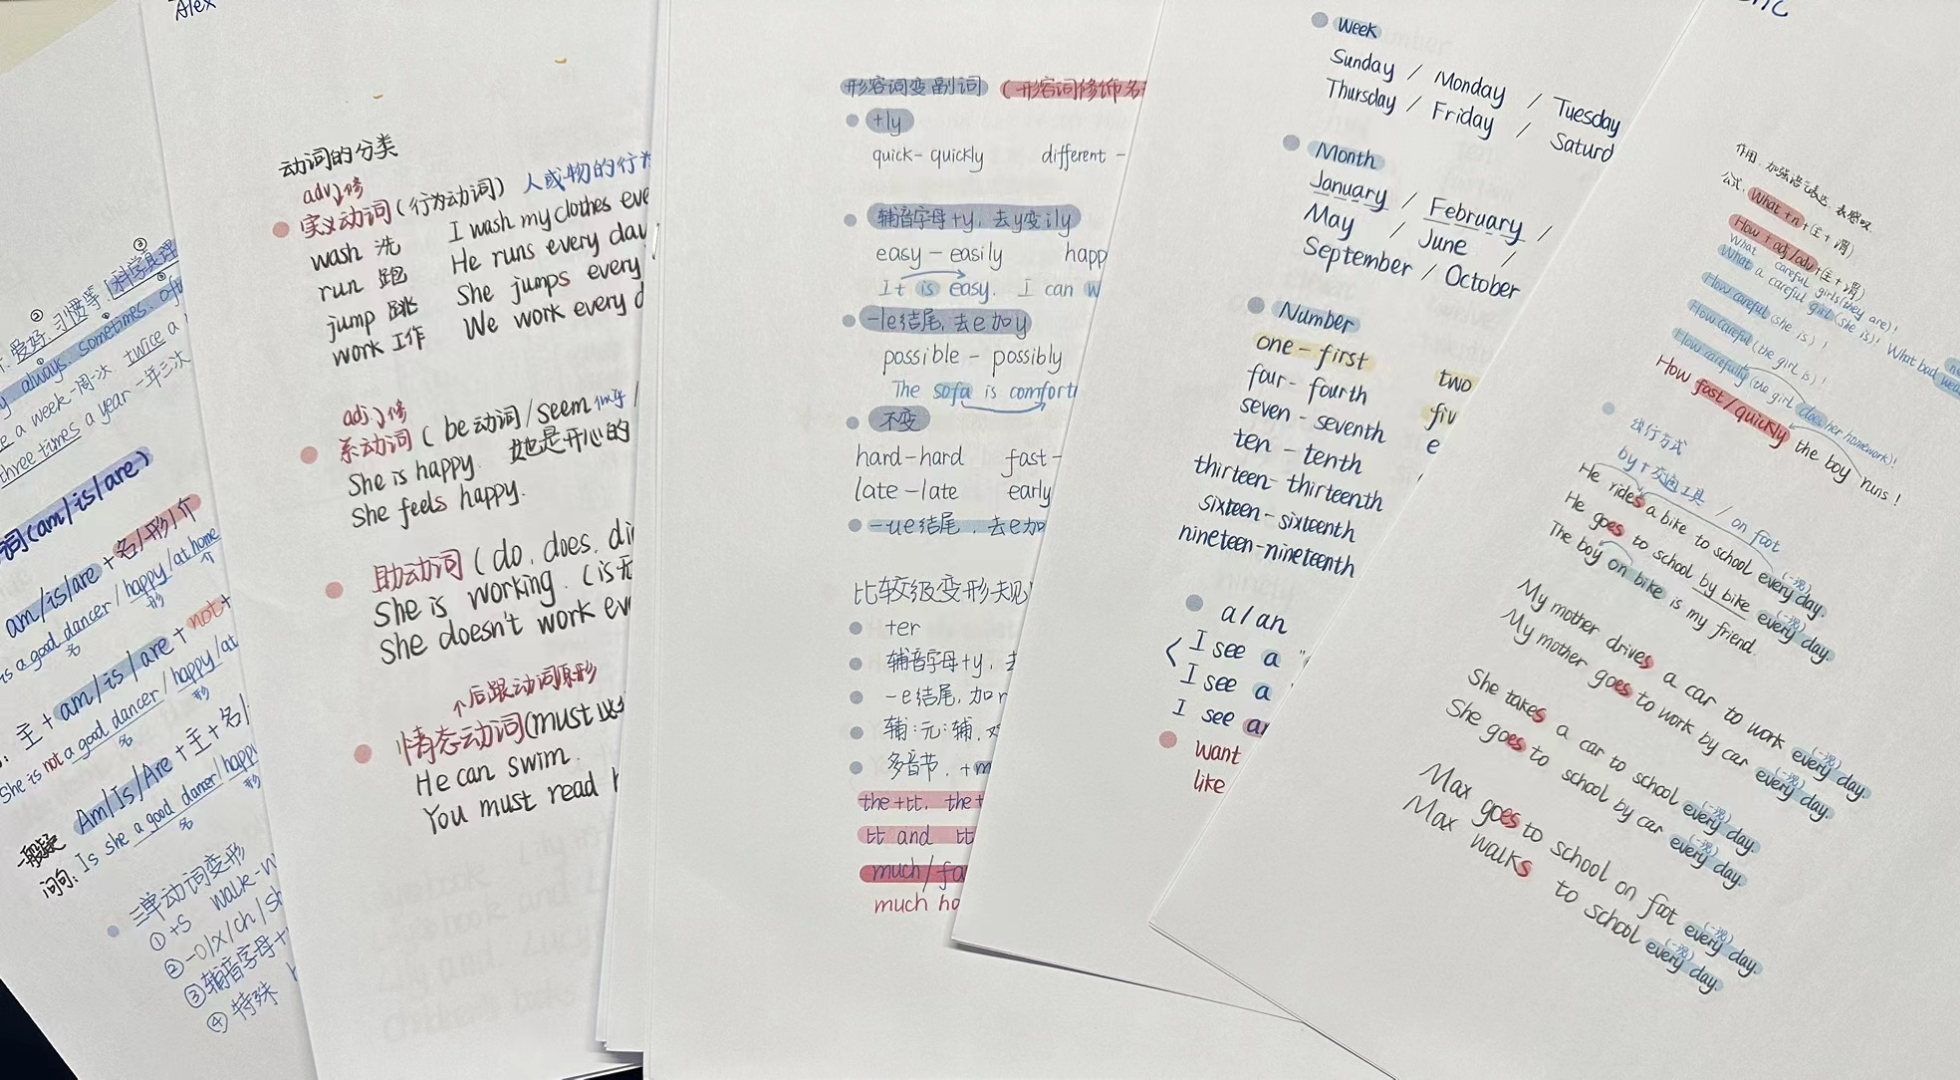 Alex
③
② 爱好. 习惯等. 科学真理
always. sometimes. of
a week 一周一次 twice a
three times a year 一年三次
词(am/is/are)
am/is/are + 名/形/介
is a good dancer / happy / at home
名 形 介
主 + am/is/are + not +
She is not a good dancer / happy / at
名 形
Am/Is/Are + 主 + 名/
一般疑问句: Is she a good dancer / happy
名 形
三单动词变形
① +s walk-w
② -o/x/ch/sh
③ 辅音字母+
④ 特殊 h
动词的分类
adv.修
实义动词(行为动词) 人或物的行为
wash 洗 I wash my clothes eve
run 跑 He runs every day
jump 跳 She jumps every
work 工作 We work every d
adj.修
系动词 ( be动词/seem 似乎 /
She is happy. 她是开心的
She feels happy.
助动词 ( do. does. di
She is working. (is无
She doesn't work ev
↑后跟动词原形
情态动词(must 必
He can swim.
You must read
形容词变副词 (形容词修饰名
+ly
quick- quickly different -
辅音字母+y, 去y变ily
easy - easily happ
It is easy. I can w
-le结尾, 去e加y
possible - possibly
The sofa is comfort
不变
hard-hard fast-
late-late early
-ue结尾, 去e加
比较级变形规
+er
辅音字母+y, 去
-e结尾, 加r
辅:元:辅, 双
多音节, +m
the+比, the+
比 and 比
much / fa
much ho
week
Sunday / Monday / Tuesday
Thursday / Friday / Saturd
Month
January / February /
May / June /
September / October
Number
one - first two
four- fourth fiv
seven - seventh e
ten - tenth
thirteen- thirteenth
sixteen-sixteenth
nineteen-nineteenth
a/an
I see a
I see a
I see an
want
like
作用: 加强语言表达, 表感叹
公式: What +n+(主+谓)
How + adj/adv+(主+谓)
What careful girls (they are)!
What a careful girl (she is)! What bad wea
How careful (she is)!
How careful (the girl is)!
How carefully (the girl does her homework)!
How fast/quickly the boy runs!
出行方式
by+交通工具 / on foot
He rides a bike to school every day.
(一现)
He goes to school by bike every day.
(一现)
The boy on bike is my friend.
My mother drives a car to work every day.
(一现)
My mother goes to work by car every day.
(一现)
She takes a car to school every day.
(一现)
She goes to school by car every day.
(一现)
Max goes to school on foot every day.
(一现)
Max walks to school every day.
(一现)